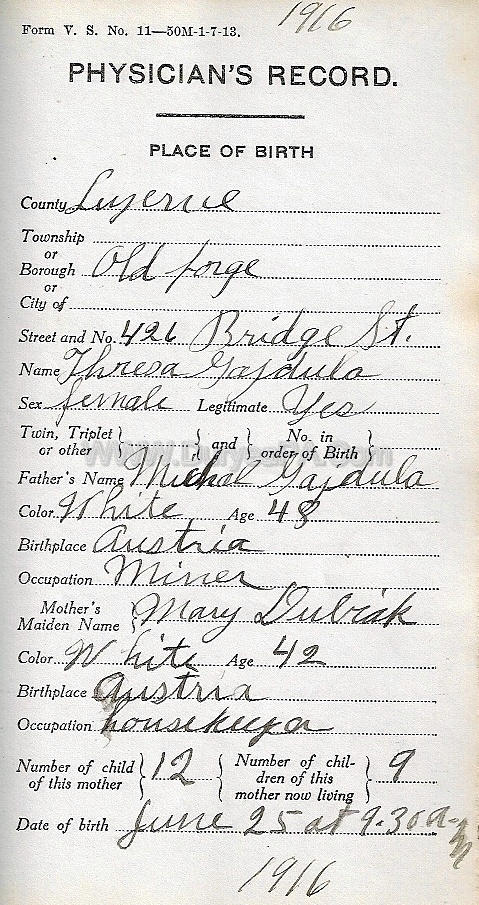 1916
Form V. S. No. 11—50M-1-7-13.
PHYSICIAN'S RECORD.
PLACE OF BIRTH
County Luzerne
Township
or
Borough Old forge
or
City of
Street and No. 426 Bridge St.
Name Thresa Gajdula
Sex female Legitimate Yes
Twin, Triplet or other } { and { No. in order of Birth }
Father's Name Michal Gajdula
Color White Age 48
Birthplace Austria
Occupation Miner
Mother's Maiden Name } Mary Dubiak
Color White Age 42
Birthplace Austria
Occupation housekeeper
Number of child of this mother } 12 { Number of children of this mother now living } 9
Date of birth June 25 at 9.30 a.m
1916